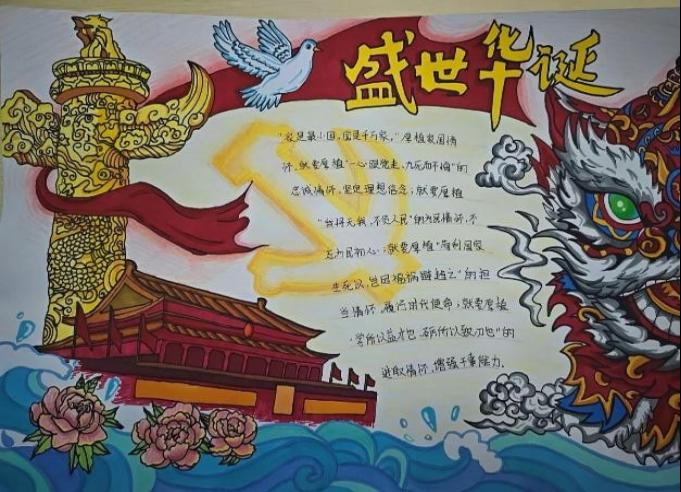 盛世华诞
"家是最小国，国是千万家，"厚植家国情
怀，就要厚植"一心跟党走，九死而不悔"的
忠诚情怀，坚定理想信念；就要厚植
"我将无我，不负人民"的为民情怀，不
忘为民初心；就要厚植"苟利国家
生死以，岂因祸福避趋之"的担
当情怀，履行时代使命；就要厚植
"学所以益才也，砺所以致刃也"的
进取情怀，增强干事能力.